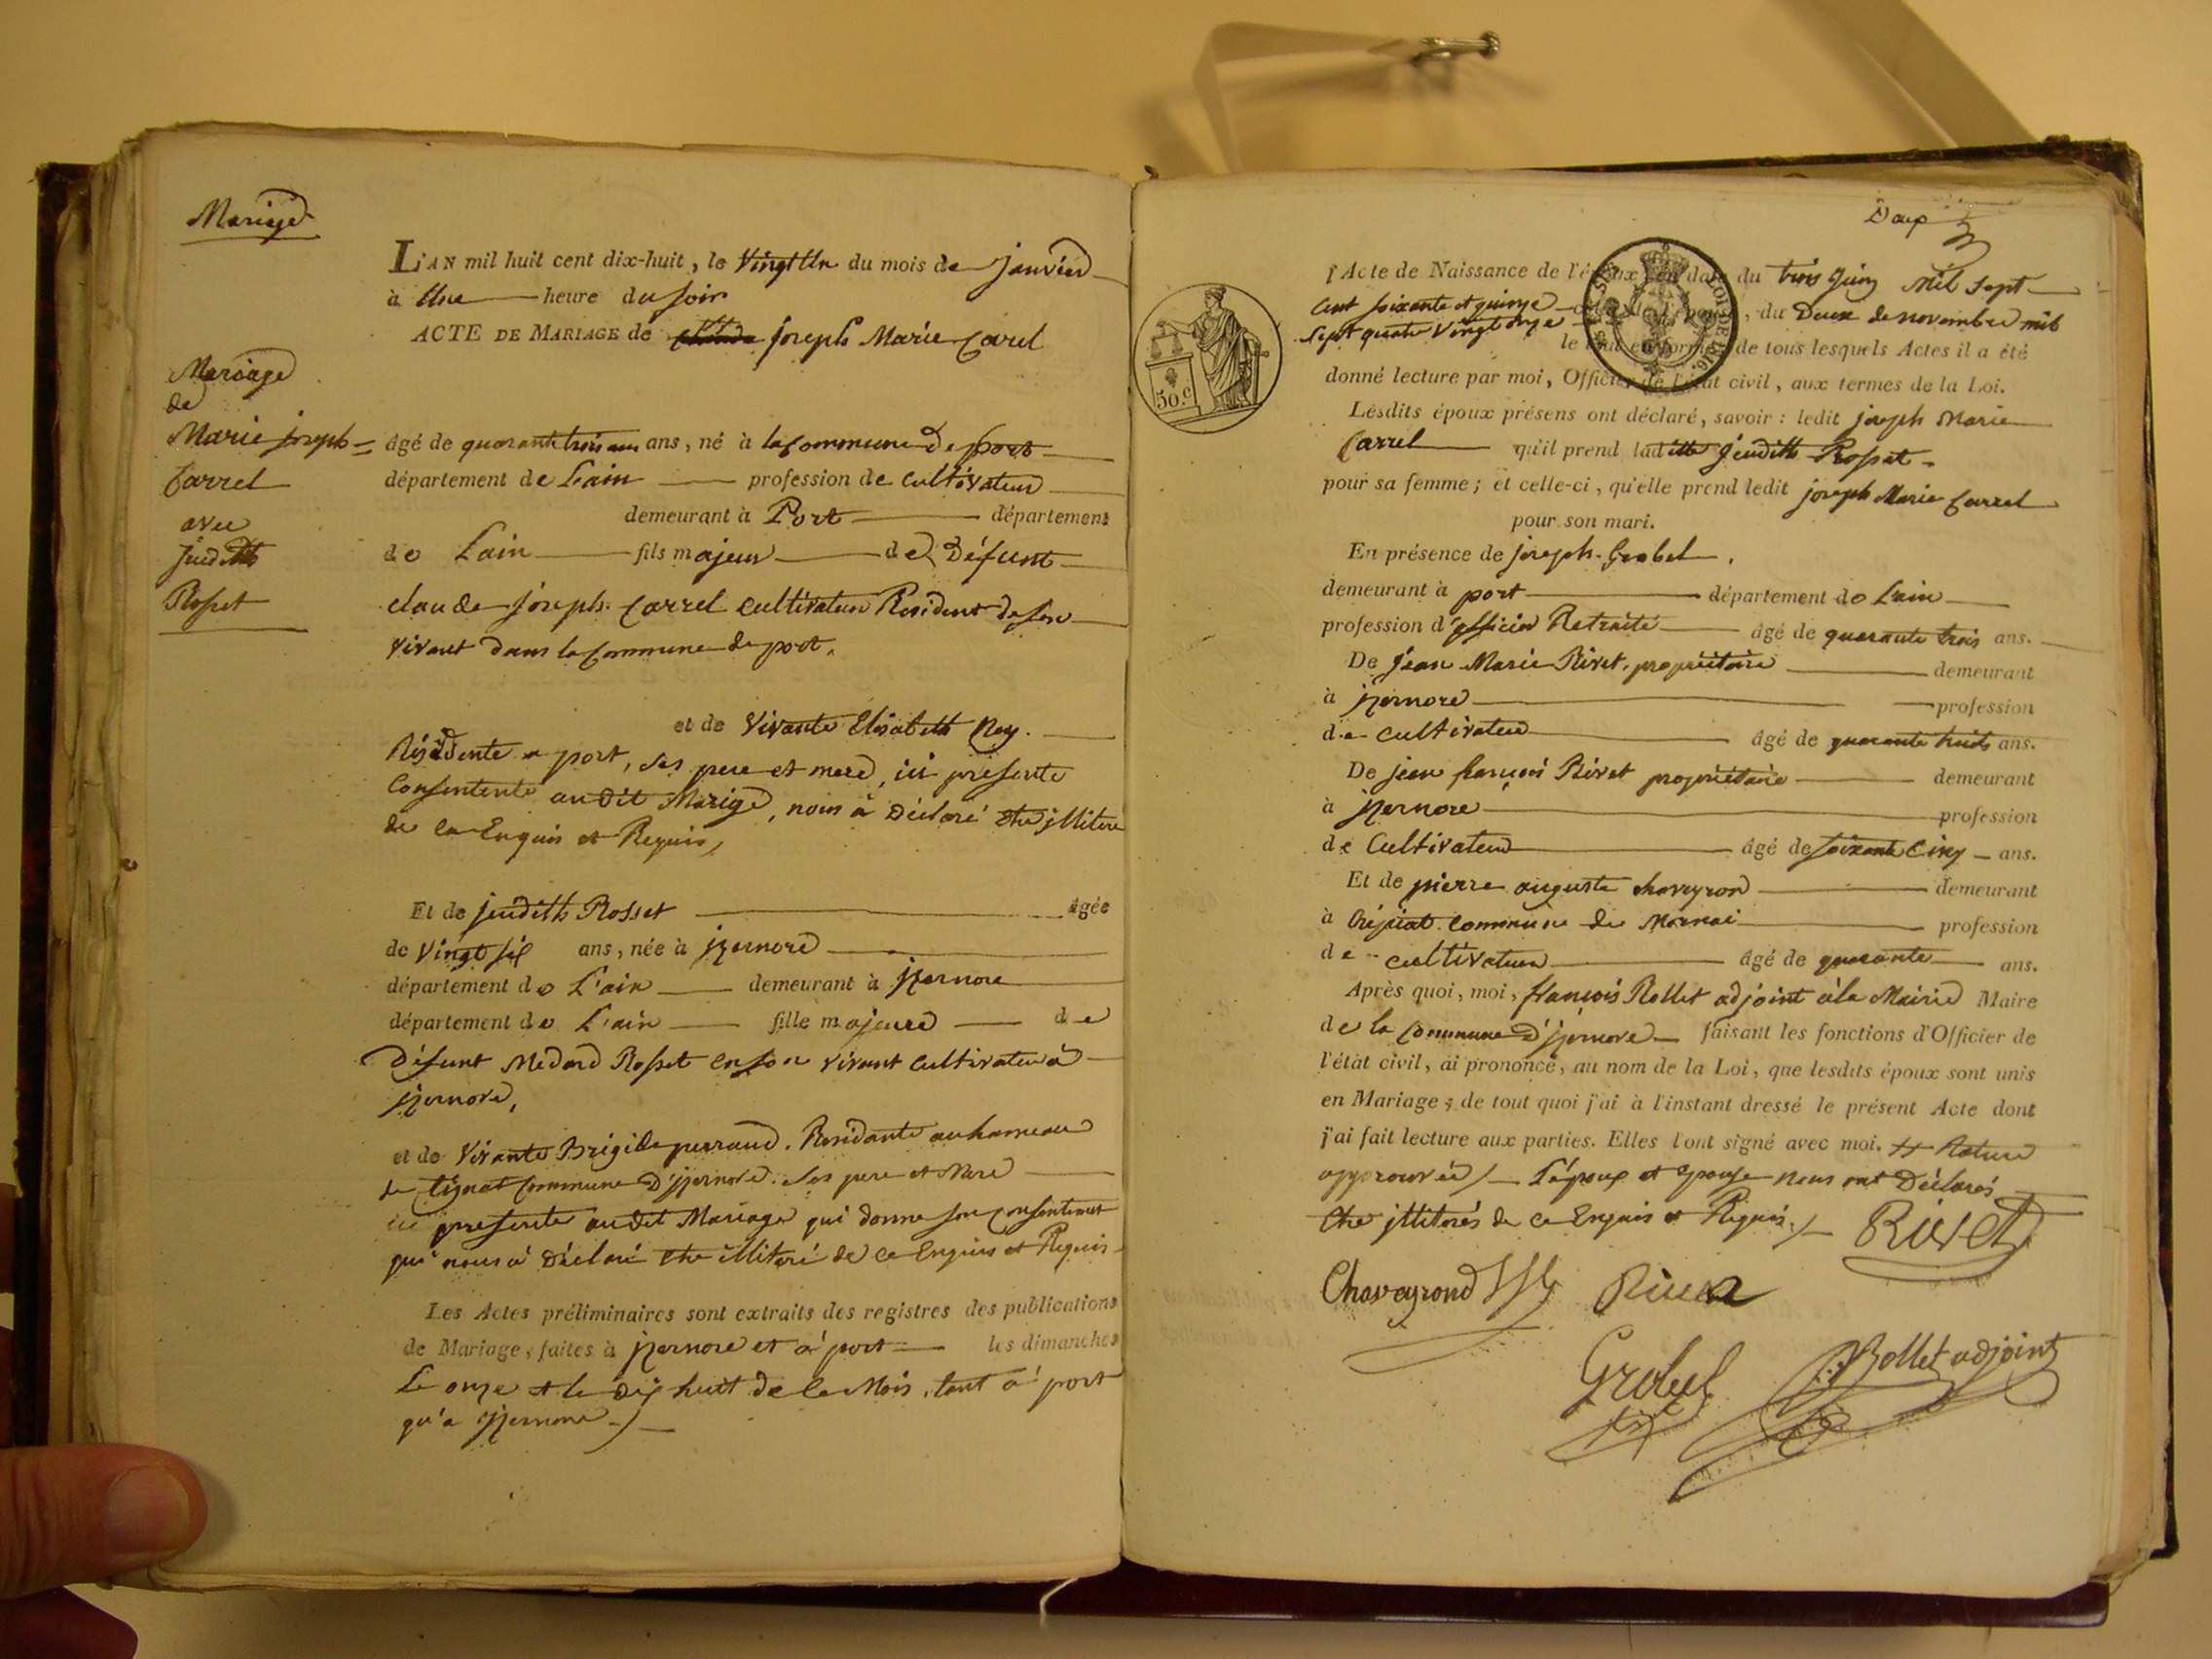 Mariage
L'AN mil huit cent dix-huit, le Vingt Un du mois de janvier
à Une heure du soir
ACTE DE MARIAGE de joseph Marie Carel
Mariage
de
Marie joseph =
Carrel
avec
judith
Rosset
âgé de quarante trois ans ans, né à la Commune de port
département de Lain profession de cultivateur
demeurant à Port département
de Lain fils majeur de Défunt
claude joseph Carrel cultivateur Resident de son
vivant dans la Commune de port.
et de Vivante Elisabeth Rey.
Résidente a port, ses pere et mere, ici presente
Consentente audit Marige, nous a Déclaré etre illitéré
de ce Enquis et Requis,
Et de jeudith Rosset âgée
de Vingt six ans, née à jzernore
département de L'ain demeurant à jzernore
département de L'ain fille majeure de
Défunt Médard Rosset en son vivant cultivateur à
jzernore,
et de Vivante Brigide perraud. Residante au hameau
de tignat Commune D'jzernore. ses pere et Mere
ici presente audit Mariage qui donne son Consentement
qui nous a Déclaré etre illiteré de ce Enquis et Requis
Les Actes préliminaires sont extraits des registres des publications
de Mariage, faites à jzernore et a port les dimanches
Le onze et le dix huit de ce Mois, tant a port
qu'a jzernore
Deux
l'Acte de Naissance de l'époux, en date du trois juin Mil sept
cent soixante et quinze celui de l'épouse, du Deux de novembre mil
sept quatre Vingt onze
le tout en forme, de tous lesquels Actes il a été
donné lecture par moi, Officier de l'état civil, aux termes de la Loi.
50.c
LOI DE 1816.
Lesdits époux présens ont déclaré, savoir : ledit joseph Marie
Carrel qu'il prend ladite jeudith Rosset
pour sa femme; et celle-ci, qu'elle prend ledit joseph Marie Carrel
pour son mari.
En présence de joseph Grobel.
demeurant à port département de Lain
profession d'officier Retraité âgé de quarante trois ans.
De jean Marie Rivet, propriétaire demeurant
à jzernore profession
de cultivateur âgé de quarante huit ans.
De jean francois Rivet propriétaire demeurant
à jzernore profession
de Cultivateur âgé de soixante Cinq ans.
Et de pierre auguste chaveyron demeurant
à Crépiat commune de Mornai profession
de cultivateur âgé de quarante ans.
Après quoi, moi, françois Rollet adjoint à la Mairie Maire
de la Commune d'jzernore faisant les fonctions d'Officier de
l'état civil, ai prononcé, au nom de la Loi, que lesdits époux sont unis
en Mariage; de tout quoi j'ai à l'instant dressé le présent Acte dont
j'ai fait lecture aux parties. Elles l'ont signé avec moi. Rature
approuvée L'époux et epouse nous ont Déclarés
etre illiterés de ce Enquis et Requis. Rivet
Chaveyrond Rivet
Grobel Rollet adjoint